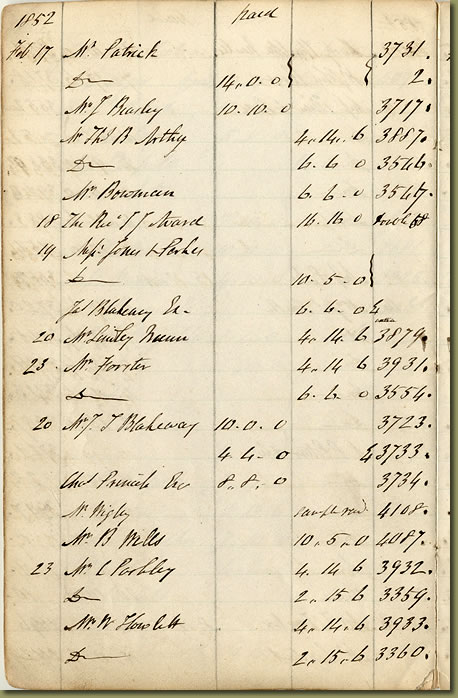 1852 Paid
Feb 17 Mr Patrick 3731.
Do 14.0.0 2.
Mr J Beasley 10.10.0 3717.
Mr Thos B 4.14.6 3887.
Do 6.6.0 3546.
Mr Bowman 6.6.0 3547.
18 The Revd J J 16.16.0
19 Messrs Jones & Forbes
Do 10.5.0
Jas Blakeway Esq 6.6.0 &
20 Mr 4.14.6 3879.
23. Mr Forster 4.14.6 3931.
Do 6.6.0 3554.
20 Mr J T Blakeway 10.0.0 3723.
4.4.0 & 3733.
Chas Esq 8.8.0 3734.
Mr Wigley 4108.
Mr B Mills 10.5.0 4087.
23 Mr C 4.14.6 3932.
Do 2.15.6 3359.
Mr W Howlett 4.14.6 3933.
Do 2.15.6 3360.